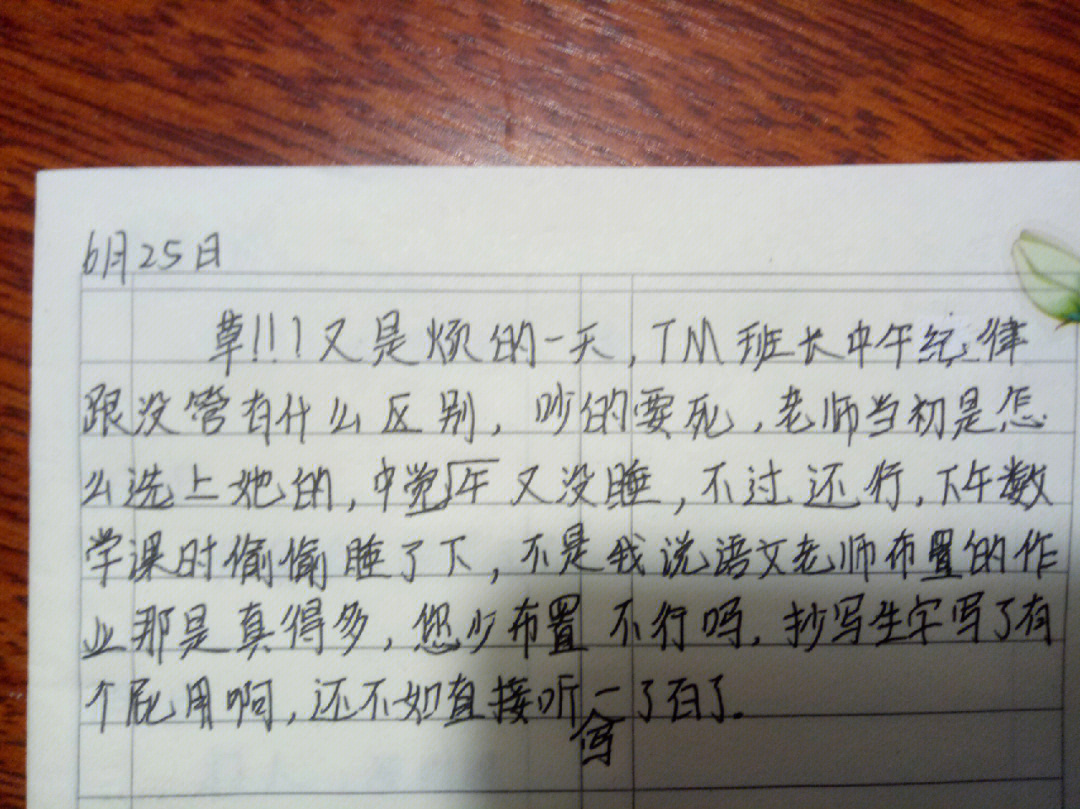 6月25日
草!!!又是烦的一天,TM班长中午纪律
跟没管有什么区别,吵的要死,老师当初是怎
么选上她的,中觉午又没睡,不过还行,下午数
学课时偷偷睡了下,不是我说语文老师布置的作
业那是真得多,您少布置不行吗,抄写生字写了有
个屁用啊,还不如直接听写一了百了.